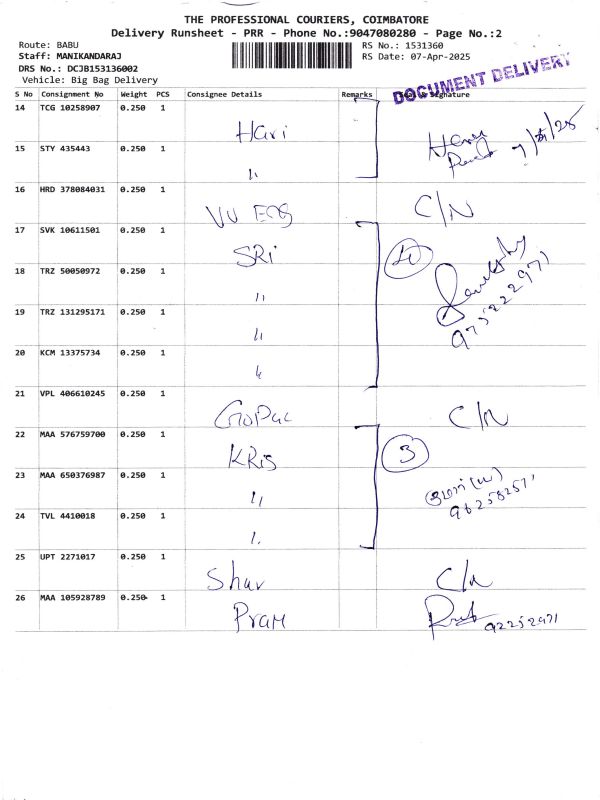 THE PROFESSIONAL COURIERS, COIMBATORE
Delivery Runsheet - PRR - Phone No.:9047080280 - Page No.:2
Route: BABU
RS No.: 1531360
Staff: MANIKANDARAJ
RS Date: 07-Apr-2025
DRS No.: DCJB153136002
Vehicle: Big Bag Delivery
DOCUMENT DELIVERY
S No Consignment No Weight PCS Consignee Details Remarks Signature
14 TCG 10258907 0.250 1
Hari
15 STY 435443 0.250 1
〃
16 HRD 378084031 0.250 1
C/N
17 SVK 10611501 0.250 1
SRi
4
18 TRZ 50050972 0.250 1
〃
19 TRZ 131295171 0.250 1
〃
975222971
20 KCM 13375734 0.250 1
〃
21 VPL 406610245 0.250 1
GoPal C/N
22 MAA 576759700 0.250 1
KRis 3
23 MAA 650376987 0.250 1
〃
24 TVL 4410018 0.250 1
〃
25 UPT 2271017 0.250 1
Shar C/N
26 MAA 105928789 0.250 1
Pram 92252971